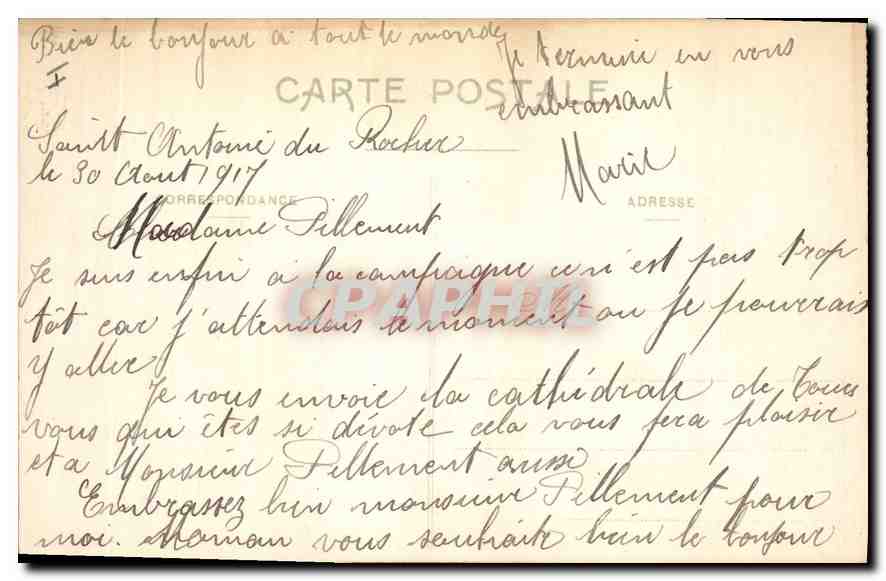 Bien le bonjour à tout le monde
Je termine en vous
embrassant
Marie
I
CARTE POSTALE
Saint Antoine du Rocher
le 30 Aout 1917
CORRESPONDANCE
ADRESSE
Madame Pillement
Je suis enfin à la campagne ce n'est pas trop
tôt car j'attendais le moment ou je pourrais
y aller
Je vous envoie la cathédrale de Tours
vous qui êtes si dévote cela vous fera plaisir
et a Monsieur Pillement aussi
Embrassez bien monsieur Pillement pour
moi. Maman vous souhaite bien le bonjour
CPAPHIL